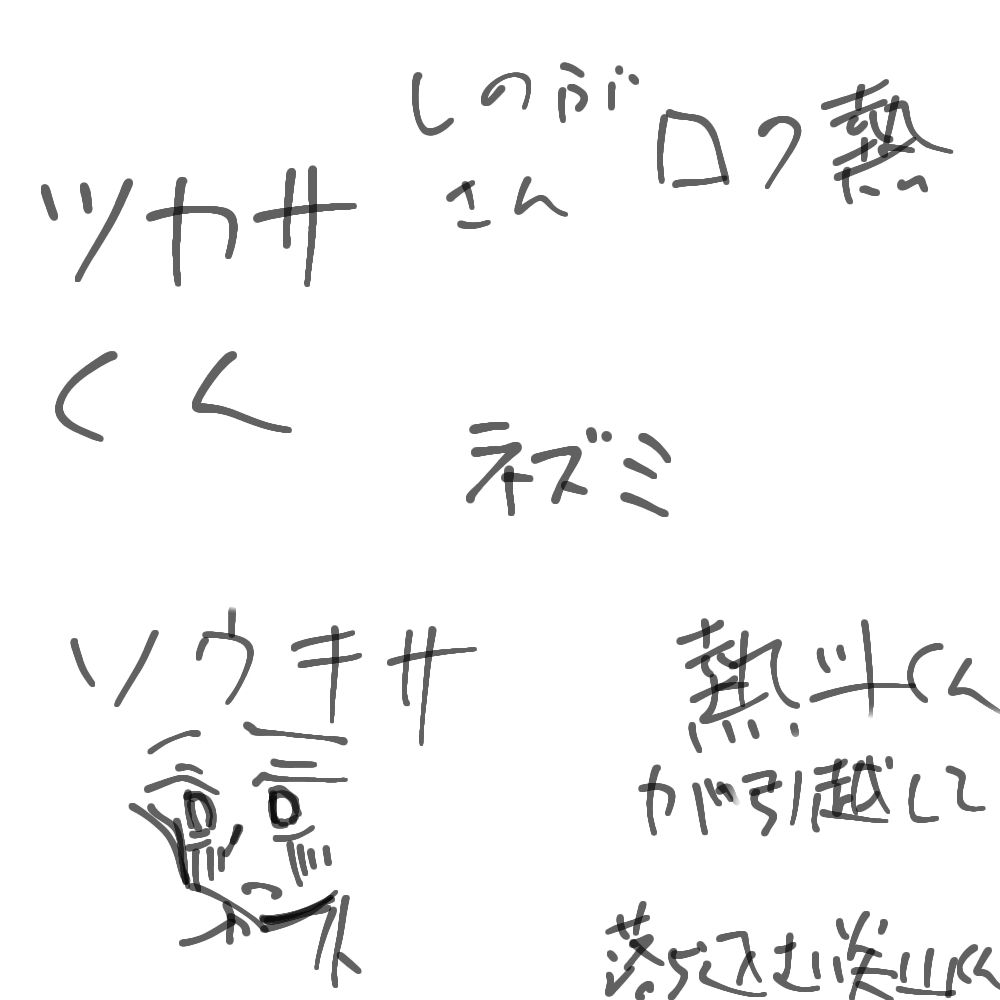 しのぶ
さん
ロク熱
ツカサ
くん
ネズミ
ソウキサ
熱斗くん
が引越して
落ち込む炎山くん